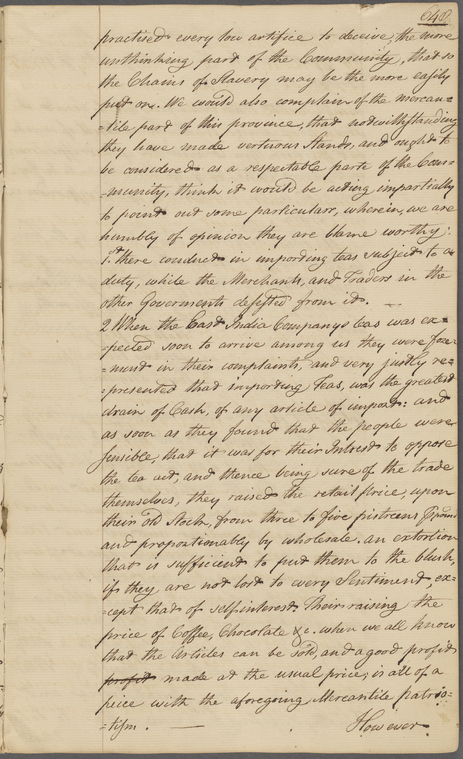 640.
practised every low artifice to deceive, the more
unthinking part of the Community, that so
the Chains of Slavery may be the more easily
put on. We would also complain of the mercan=
=tile part of this province, that notwithstanding
they have made vertuous Stands, and ought to
be considered as a respectable parte of the Com=
=munity, think it would be acting impartially
to point out some particulars, wherein, we are
humbly of opinion they are blame worthy:
1st. there conduct in importing teas subject to a
duty, while the Merchants, and Traders in the
other Governments desisted from it. —
2 When the East India Companys teas was ex=
=pected soon to arrive among us they were fore=
=most in their complaints, and very justly re=
=presented that importing Teas, was the greatest
drain of Cash, of any article of import: and
as soon as they found that the people were
sensible, that it was for their Intrest to oppose
the tea act, and thence being sure of the trade
themselves, they raised the retail price, upon
their old Stock, from three to five pistreens
and proportionably by wholesale. an extortion
that is sufficient to put them to the blush,
if they are not lost to every Sentiment, ex=
=cept that of selfinterest Their raising the
price of Coffee, Chocolate &c. when we all know
that the Articles can be sold, and a good profit
profit made at the usual price, is all of a
peice with the aforegoing Mercantile patrio=
=tism. —
However